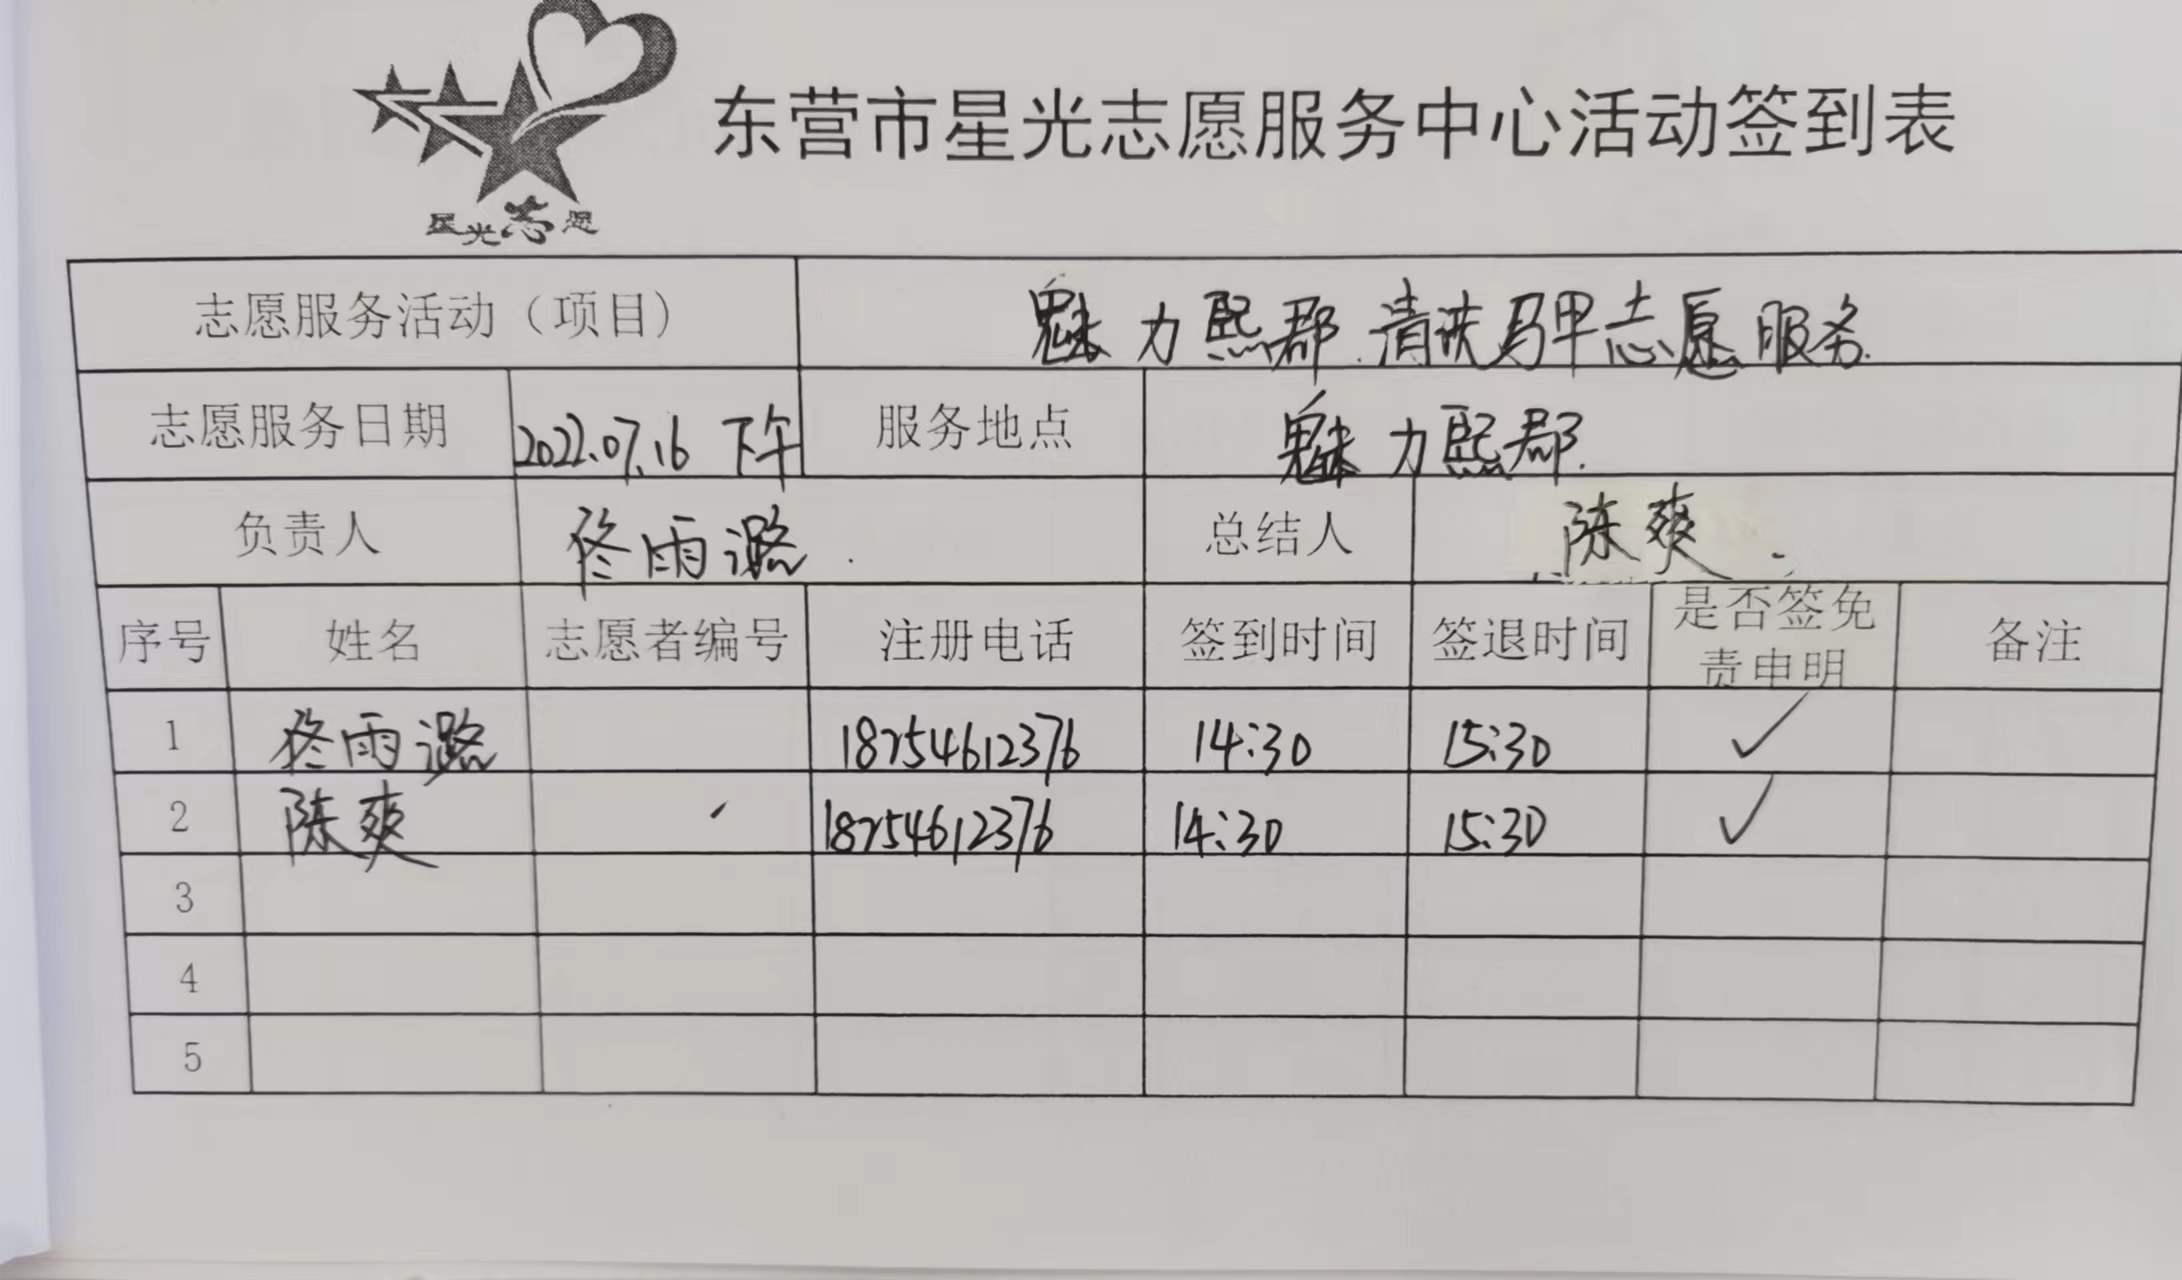 星光志愿
东营市星光志愿服务中心活动签到表
志愿服务活动（项目） 魅力熙郡 清洗马甲志愿服务
志愿服务日期 2022.07.16 下午 服务地点 魅力熙郡
负责人 佟雨潞 总结人 陈爽
序号 姓名 志愿者编号 注册电话 签到时间 签退时间 是否签免责申明 备注
1 佟雨潞 18754612376 14:30 15:30 ✓
2 陈爽 18754612376 14:30 15:30 ✓
3
4
5